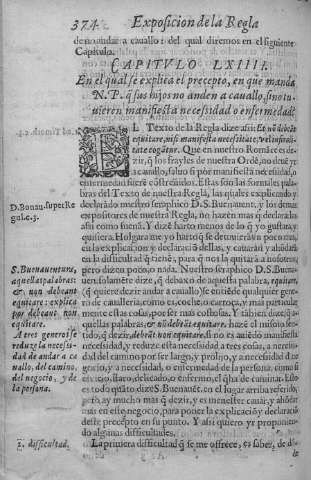 374 Exposicion de la Regla
de no andar a cauallo: del qual diremos en el siguiente
Capitulo.
CAPITVLO LXIIII.
En el qual se explica el precepto, en que manda
N. P. q̃ sus hijos no anden a cauallo, sino tu
uieren manifiesta necessidad o enfermedad:
EL Texto de la Regla dize assi: Et nõ debeãt
equitare, nisi manifesta necessitate, vel infirmi
tate cogãtur. Que en nuestro Romãce es de-
zir, q̃ los frayles de nuestra Ordẽ, no deuẽ yr
a cauallo, saluo si por manifiesta necessidad, o
enfermedad fuere cõstreñidos. Estas son las formales pala-
bras del Texto de nuestra Regla, las quales explicando y
declarãdo nuestro seraphico D. S. Buenauent. y los demas
expositores de nuestra Regla, no hazen mas q̃ declararla
assi como suena. Y dizẽ harto menos de lo q̃ yo gustara, y
quisiera. Holgara me yo harto q̃ se detuuierã vn poco mas
en la explicacion y declaraciõ dellas, y
en la difficultad q̃ tiene, para q̃ nos la quitarã a nosotros,
pero dizen poco, o nada. Nuestro seraphico D. S. Buena
uen. solamente dize, q̃ debaxo de aquesta palabra, equitare,
q̃ quiere dezir andar a cauallo se entiẽde qualquier gene-
ro de caualleria, como es, coche, o carroça, y mas particular
mente estas cosas, por ser mas costosas. Y tãbien dize, q̃ a-
quellas palabras, & nõ debeãt equitare, haze el mismo sen-
tido, q̃ dezir, debẽt non equitare, sino es auiẽdo manifiesta
necessidad, y reduze esta necessidad a tres cosas, a necessi-
dad del camino por ser largo, y prolixo, y a necessidad d ne
gocio, y a necessidad, o enfermedad de la persona, como si
es viejo, flaco, delicado, o enfermo, el q̃ ha de caminar. Esto
es todo quãto dize S. Buenauẽt. en el lugar arriba referido,
pero, ay mucho mas q̃ dezir, y es menester cauar, y ahõdar
mas en este negocio, para poner la explicaciõ y declaraciõ
deste precepto en su punto. Y assi quiero yr proponien-
do algunas difficultades.
La primera difficultad q̃ se me offrece, es saber, de dõ
D. Bonau. super Re
gul. c. 3.
S. Buenauentura,
aquellas palabras:
& non debeant
equitare: explica
por debeant non
equitare.
A tres generos se
reduze la necessi-
dad de andar a ca
uallo, del camino,
del negocio, y de
la persona.
1. difficultad.